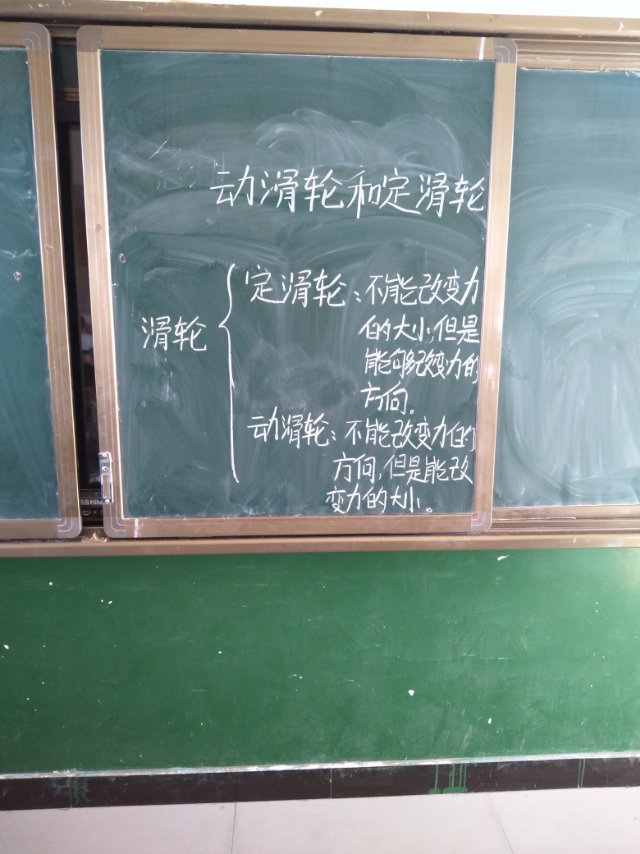 动滑轮和定滑轮
滑轮
定滑轮:不能改变力
的大小,但是
能够改变力的
方向。
动滑轮:不能改变力的
方向,但是能改
变力的大小。